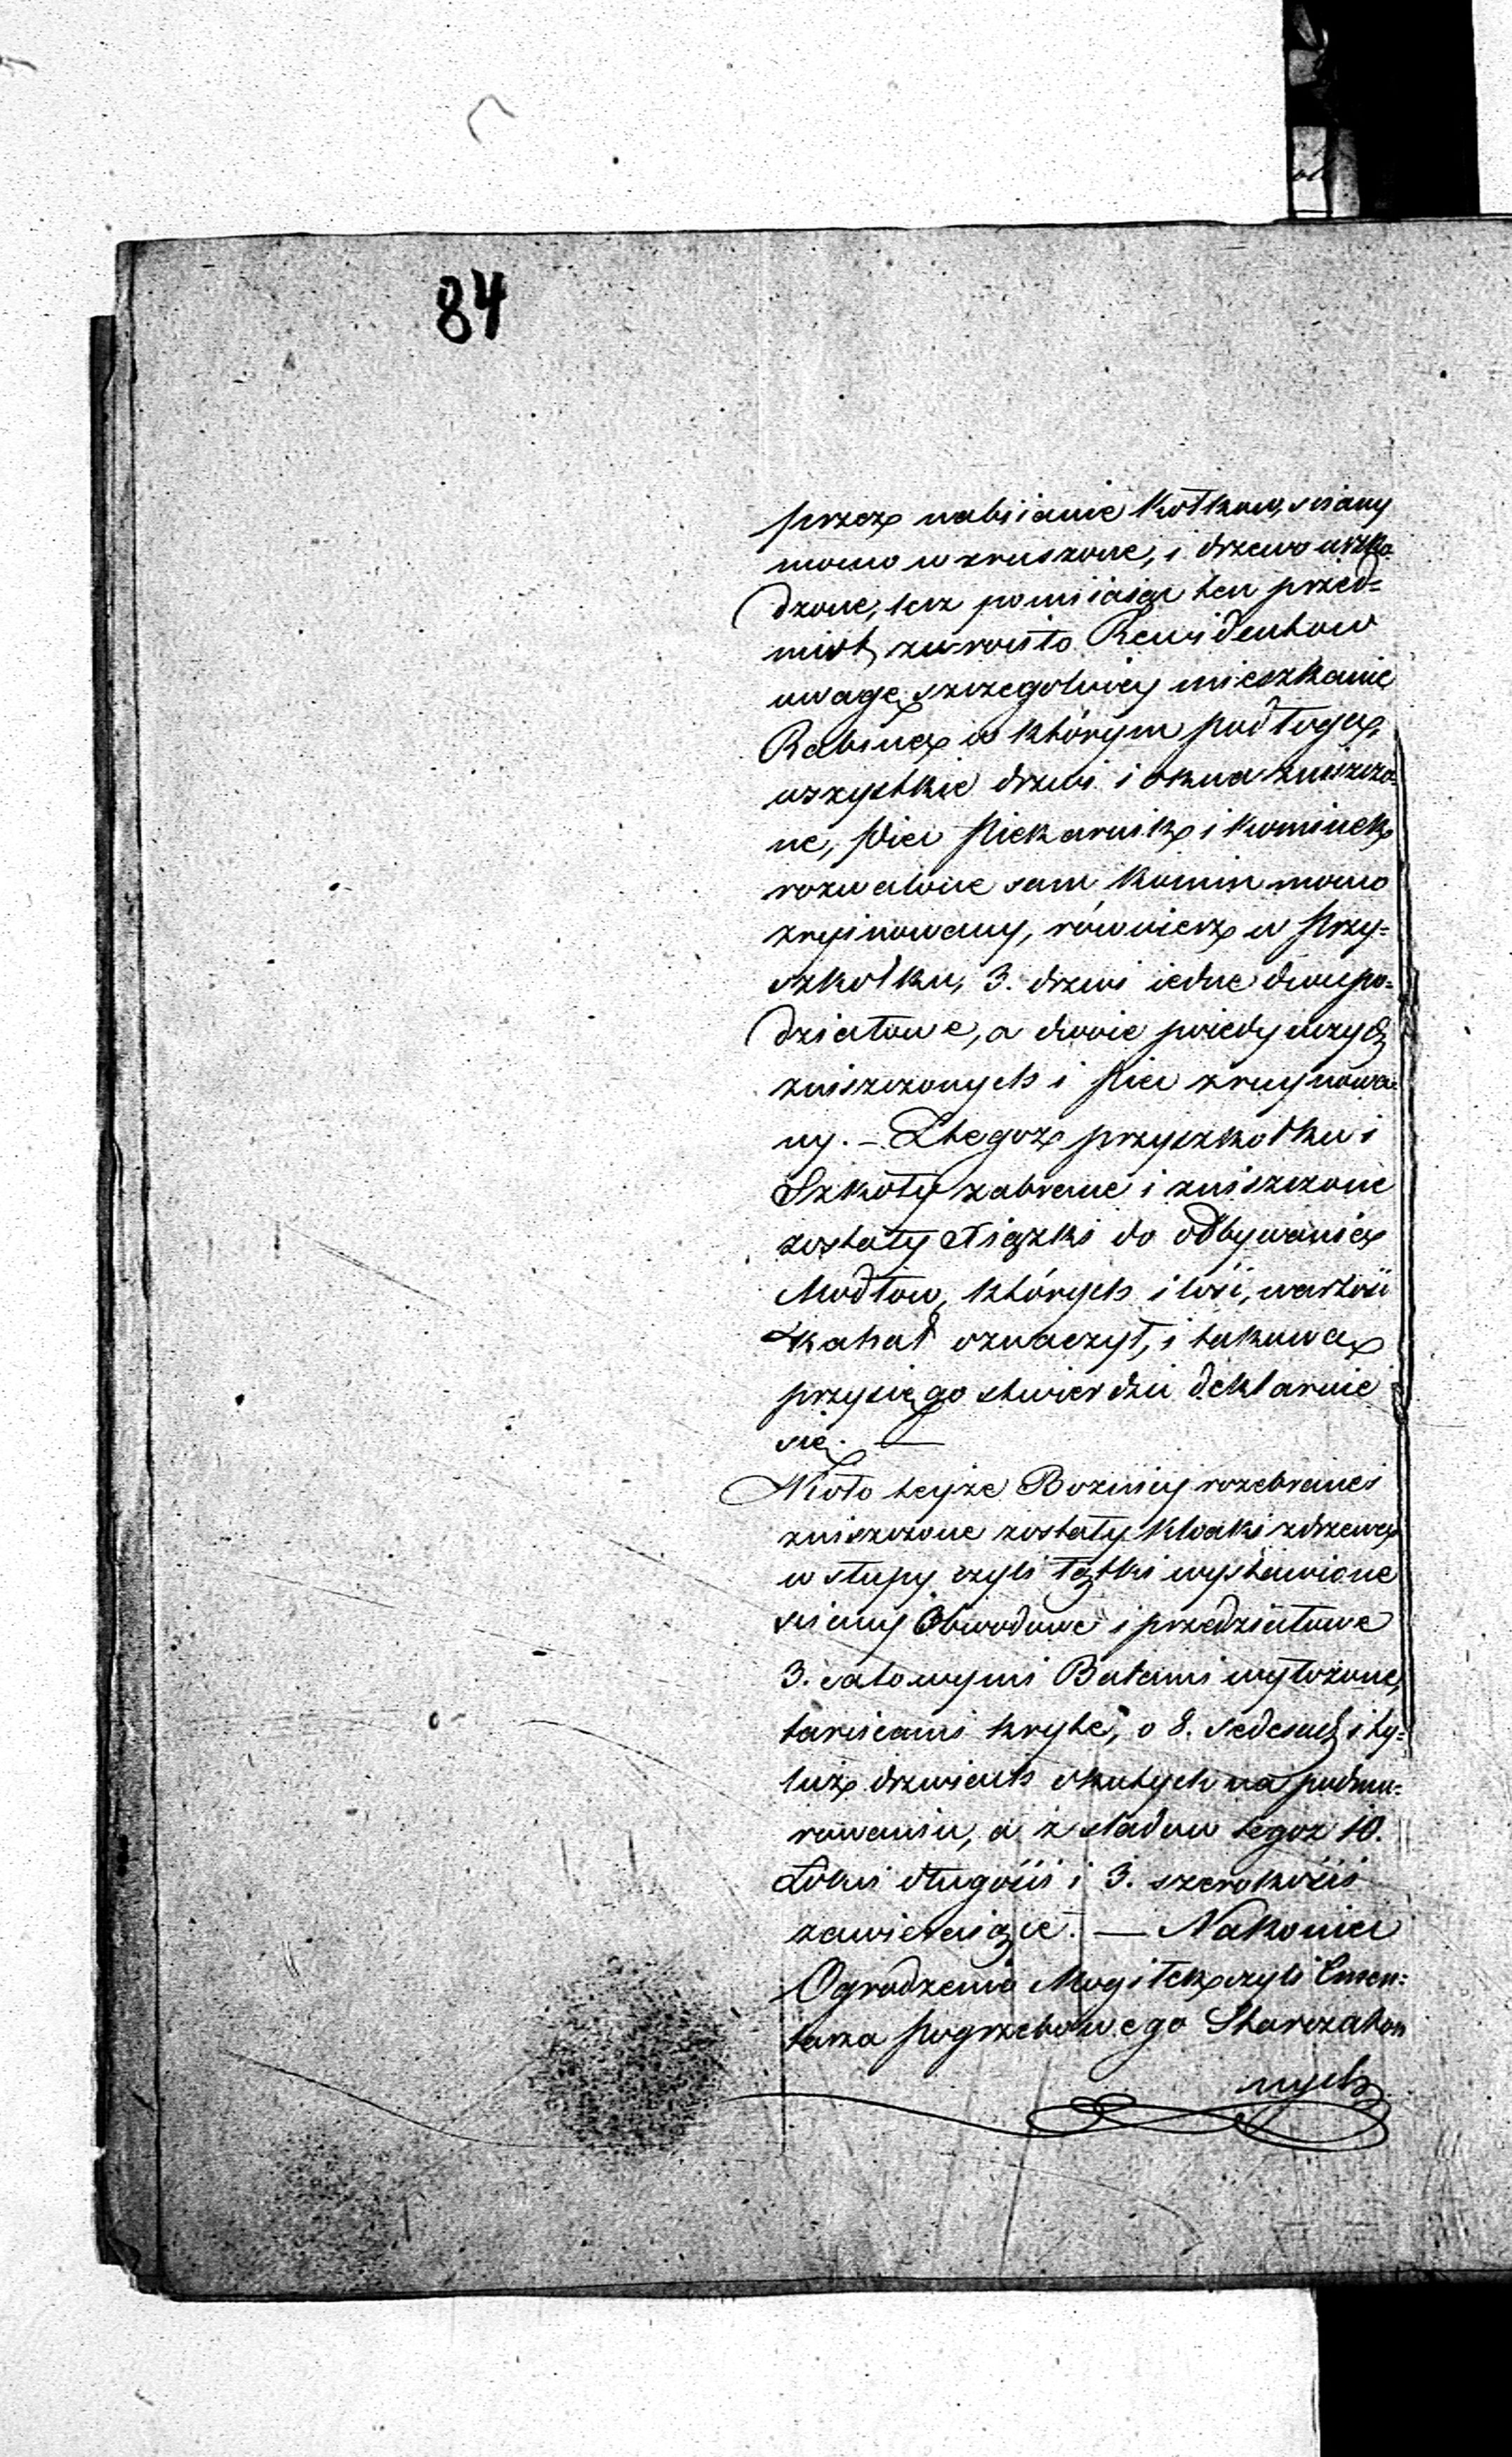 84
przez nabiianie Kołkow, sciany
mocno wzruszone, i drzewo uszko-
dzone, lecz pomiiaiąc ten przed=
miot, zwrociło Rewidentow
uwagę, szczegolniey mieszkanie
Rabina, w którym podłoga,
wszystkie drzwi i okna zniszczo-
ne, piec Piekarnik i kominek
rozwalone sam komin mocno
zryinowany, równierz w Przy=
szkołku, 3. drzwi iedne dwupo=
działowe, a dwoie poiedynczych
zniszczonych i piec zruynowa-
ny. – Z tegoz przyszkołku i
Szkoły zabrane i zniszczone
zostały Książki do odbywania
Modłow, których ilość, wartość
Kahał oznaczył, i takowa
przysięgo stwierdzić deklaruie
się. —
Koło teyże Boznicy rozebrane i
zniszczone zostały kloaki z drzewa
w słupy czyli łątki wystawione
sciany Obwodowe i przedziałowe
3. calowymi Balami wyłożone,
tarcicami kryte, o 8. sedesach i ty=
luż drzwiach okutych na podmu=
rowaniu, a z sladow tegoz 10.
Łokci długości i 3. szerokości
zawieraiące. — Nakoniec
Ogrodzenie Mogiłek czyli Cmen=
tarza pogrzebowego Starozakon
nych